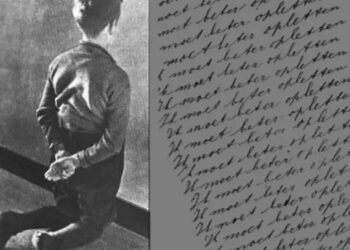 moet beter opletten
moet beter opletten
moet beter opletten
moet beter opletten
k moet beter opletten
Ik moet beter opletten
Ik moet beter opletten
Ik moet beter opletten
Ik moet beter opletten
Ik moet beter opletten
Ik moet beter opletten
Ik moet beter opletten
Ik moet beter opletten
Ik moet beter